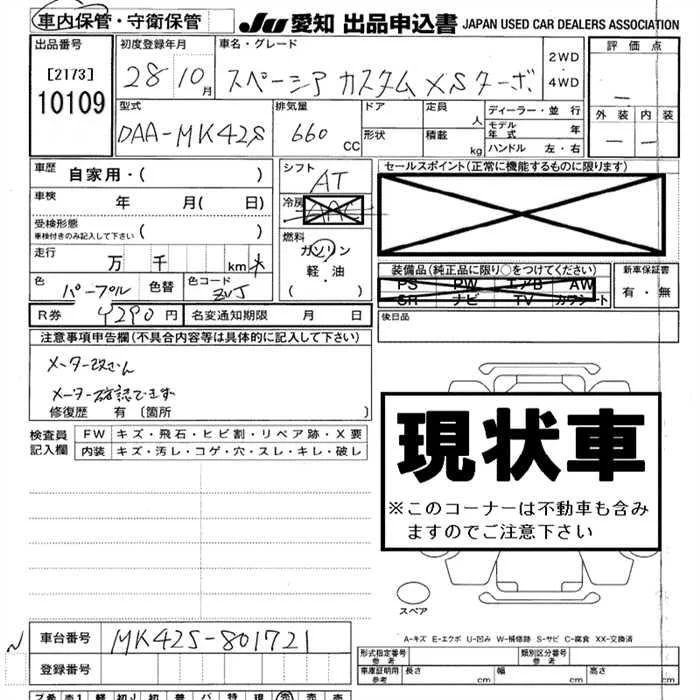 車内保管・守衛保管
JU 愛知 出品申込書 JAPAN USED CAR DEALERS ASSOCIATION
出品番号
[2173]
10109
初度登録年月
28 10 月
車名・グレード
スペーシア カスタム XSターボ
2WD
・
4WD
評価点
外装 内装
型式
DAA-MK42S
排気量
660 CC
ドア
形状
定員
人
積載
kg
ディーラー・並行
モデル年式 年
ハンドル 左・右
車歴
自家用・( )
車検
年 月( 日)
受検形態
車検付きのみ記入して下さい ( )
走行
万 千 km
色
パープル
色替
色コード
ZVJ
シフト
AT
冷房
AAC
燃料
ガソリン
軽・油
( )
R券 4290 円 名変通知期限 月 日
セールスポイント(正常に機能するものに限ります)
装備品(純正品に限り○をつけてください)
PS PW エアB AW
SR ナビ TV カワシート
新車保証書
有・無
後日品
注意事項申告欄(不具合内容等は具体的に記入して下さい)
メーター改ざん
メーター確認できず
修復歴 有 〔箇所 〕
検査員
記入欄
FW キズ・飛石・ヒビ割・リペア跡・X要
内装 キズ・汚レ・コゲ・穴・スレ・キレ・破レ
現状車
※このコーナーは不動車も含み
ますのでご注意下さい
スペア
A-キズ E-エクボ U-凹み W-補修跡 S-サビ C-腐食 XX-交換済
車台番号 MK42S-801721
登録番号
形式指定番号
参考
類別区分番号
参考
車庫証明用
参考
長さ cm 幅 cm 高さ cm